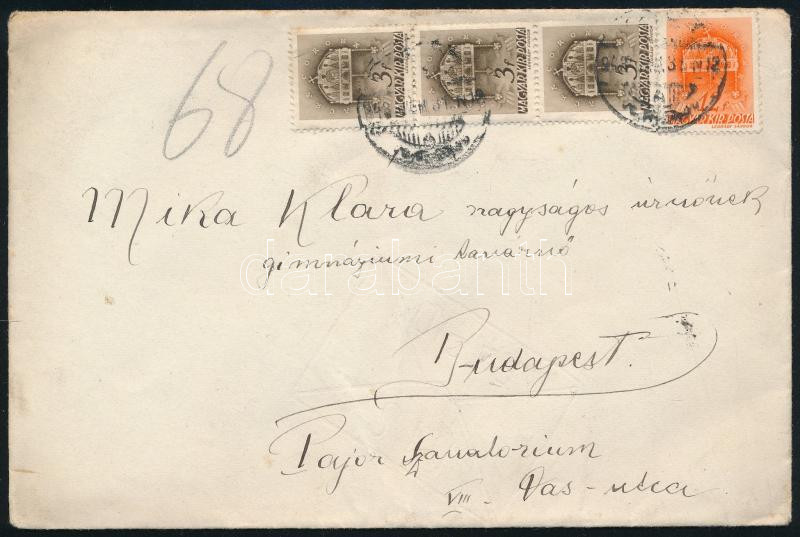 3f
MAGYAR KIR. POSTA
3f
MAGYAR KIR. POSTA
3f
MAGYAR KIR. POSTA
MAGYAR KIR. POSTA
68
Mika Klara nagyságos úrnőnek
gimnáziumi tanárnő
darabanth
Budapest.
Pajor Szanatorium
VIII. Vas-utca